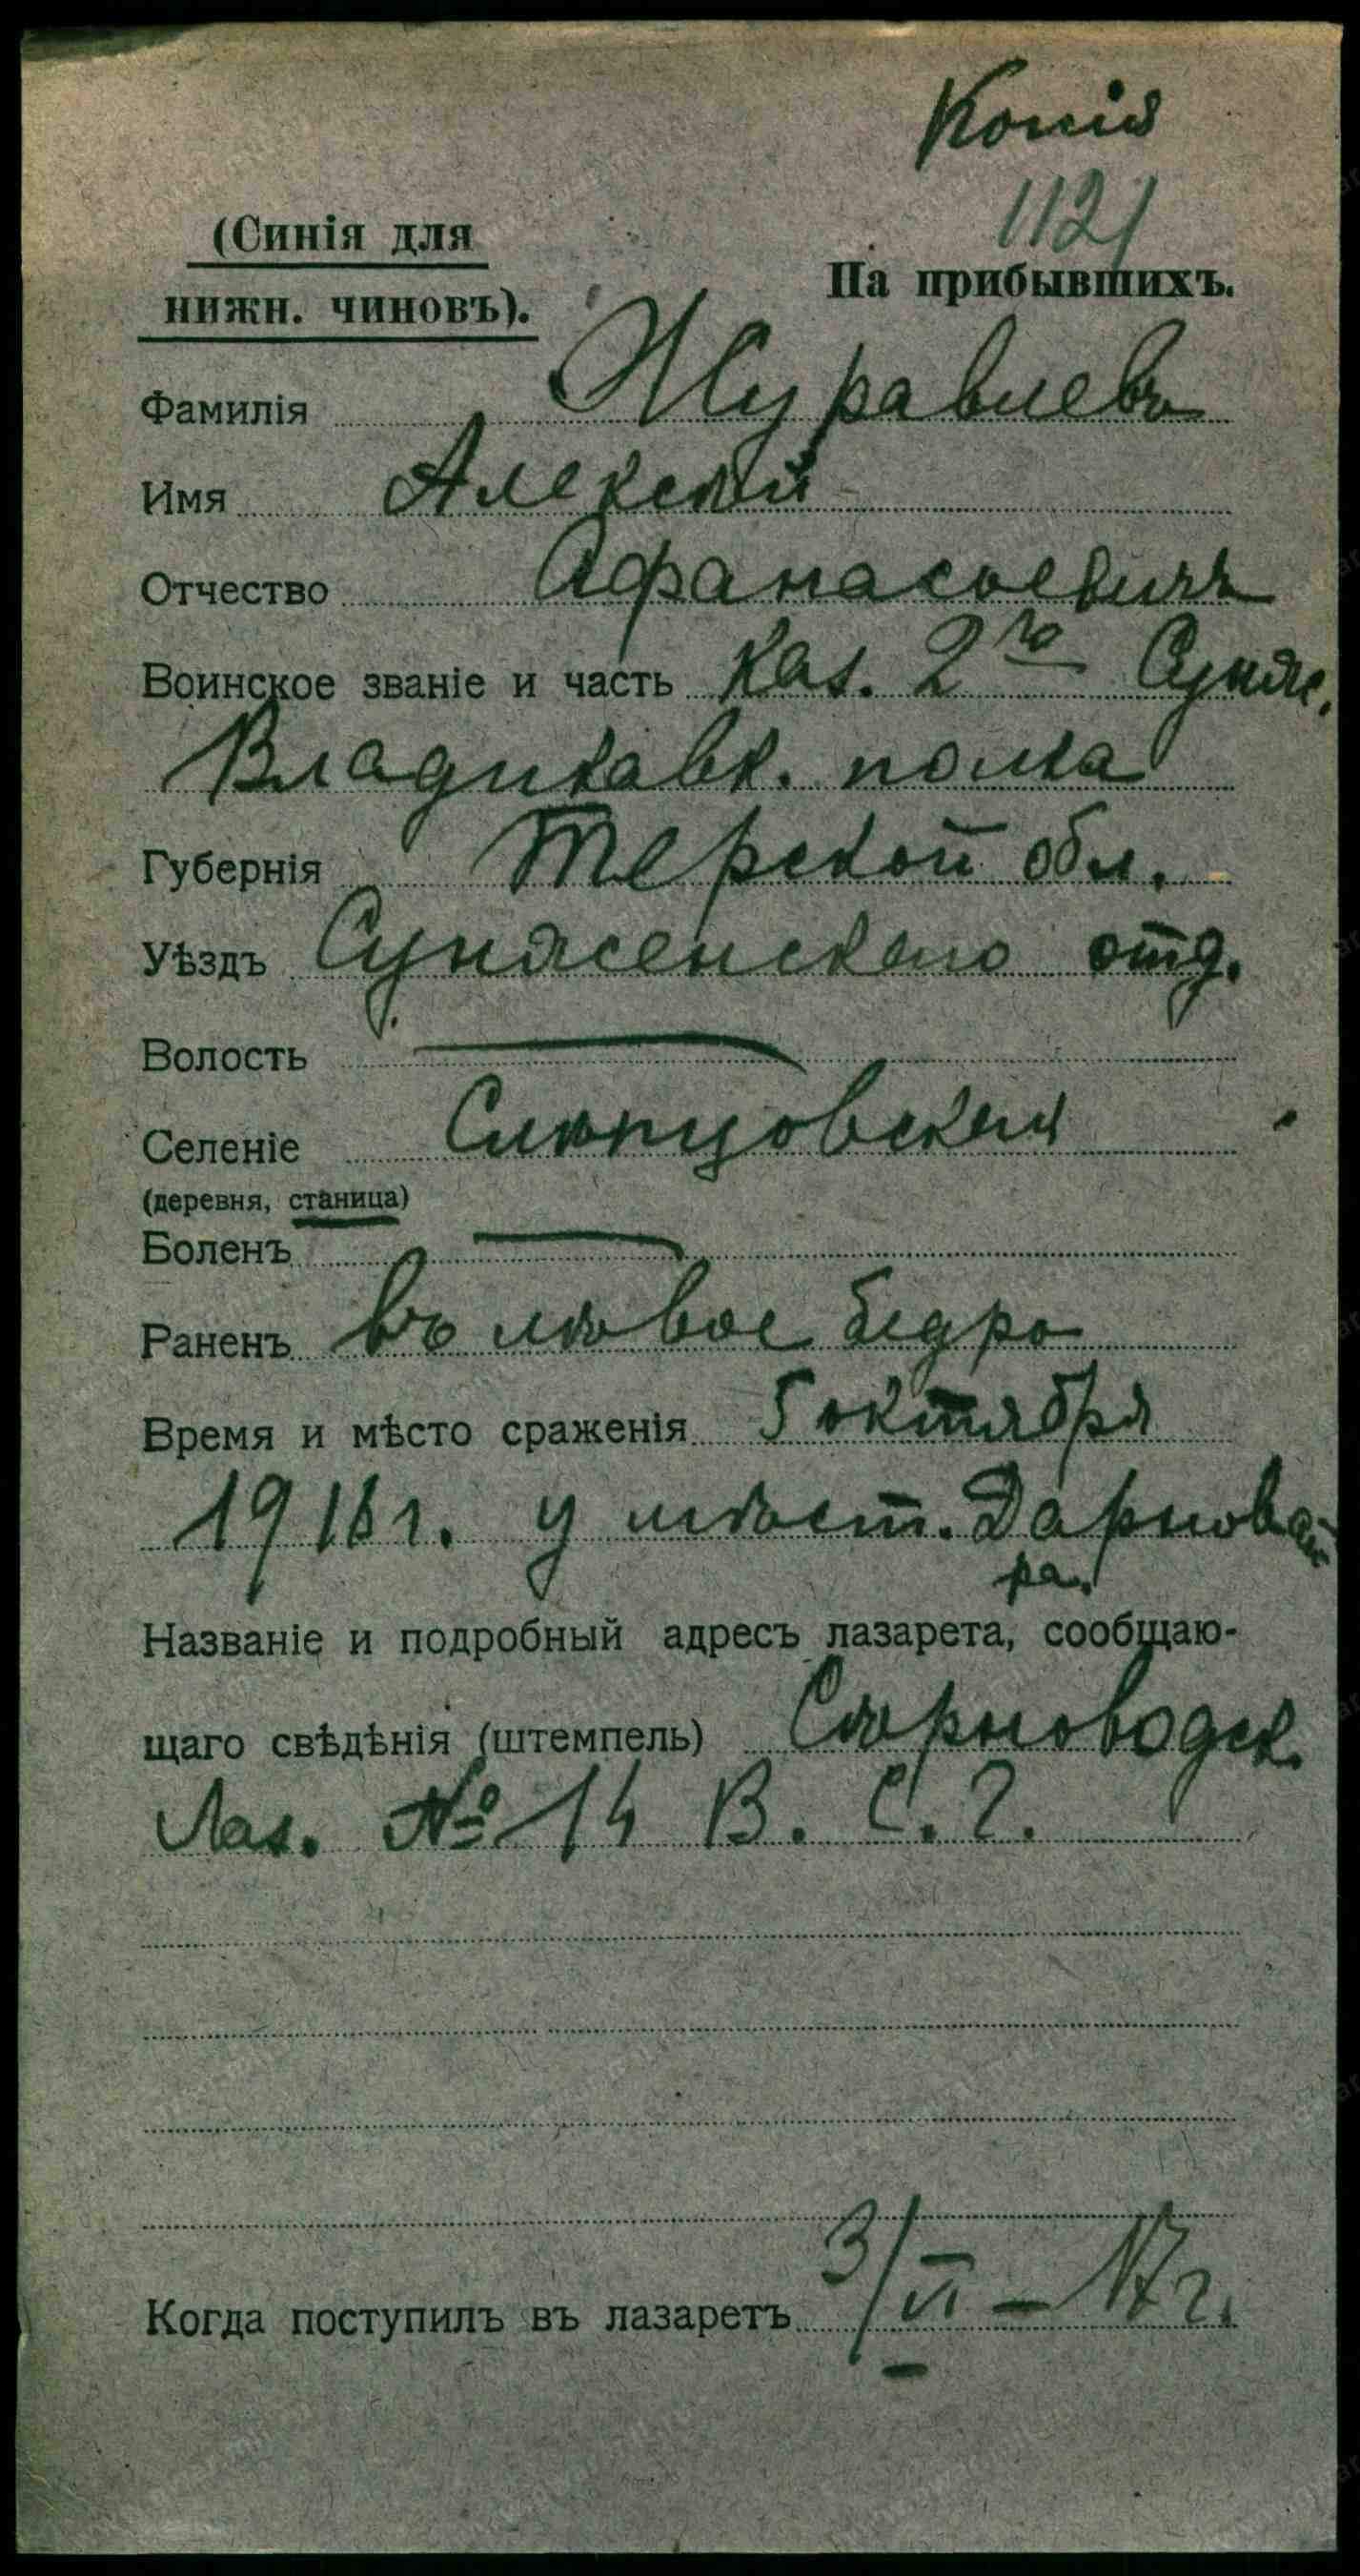 Копія
1121
(Синія для
нижн. чиновъ).
На прибывшихъ.
Фамилія Журавлевъ
Имя Алексѣй
Отчество Афанасьевичъ
Воинское званіе и часть Каз. 2го Сунж.
Владикавк. полка
Губернія Терской обл.
Уѣздъ Сунженскаго отд.
Волость
Селеніе Слѣпцовская
(деревня, станица)
Боленъ
Раненъ въ лѣвое бедро
Время и мѣсто сраженія 5 октября
1916 г. у мѣст. Дарнова
ра.
Названіе и подробный адресъ лазарета, сообщаю-
щаго свѣдѣнія (штемпель) Сѣрноводск.
Лаз. № 14 В. С. Г.
Когда поступилъ въ лазаретъ 3/VI – 17 г.